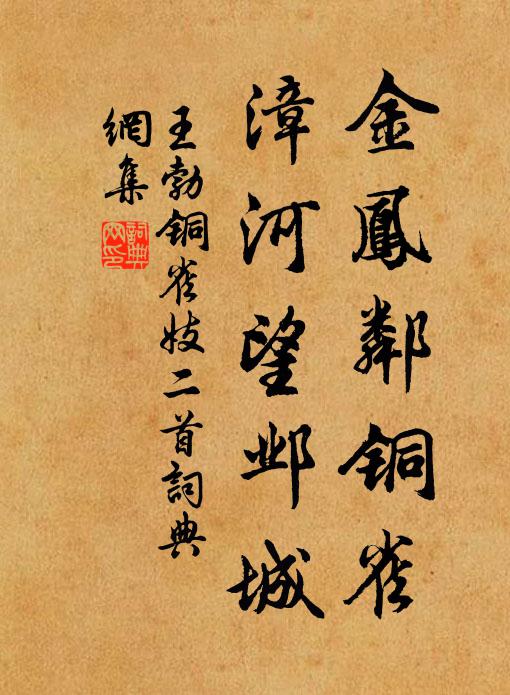 金鳳鄰铜雀
漳河望邺城
王勃铜雀妓二首詞典
網集
詞典網印